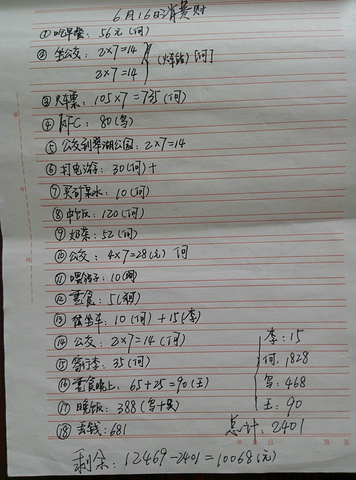 6月16日消费财
①吃早餐: 56元(何)
②坐公交: 2×7=14
2×7=14 [何]
③火车票: 105×7=735(何)
④KFC: 80(写)
⑤公交到翠湖公园: 2×7=14
⑥打电游: 30(何)+
⑦买矿泉水: 10(何)
⑧中饭: 120(何)
⑨奶茶: 52(何)
⑩公交: 4×7=28(元) 何
⑪喂鸽子: 10(何)
⑫零食: 5(何)
⑬碰坐车: 10(何)+15(李)
⑭公交: 2×7=14(何)
⑮寄行李: 35(何)
⑯零食晚上: 65+25=90(王)
⑰晚饭: 388
⑱去钱: 681
李: 15
何: 1828
写: 468
王: 90
总计: 2401
剩余: 12469-2401=10068(元)